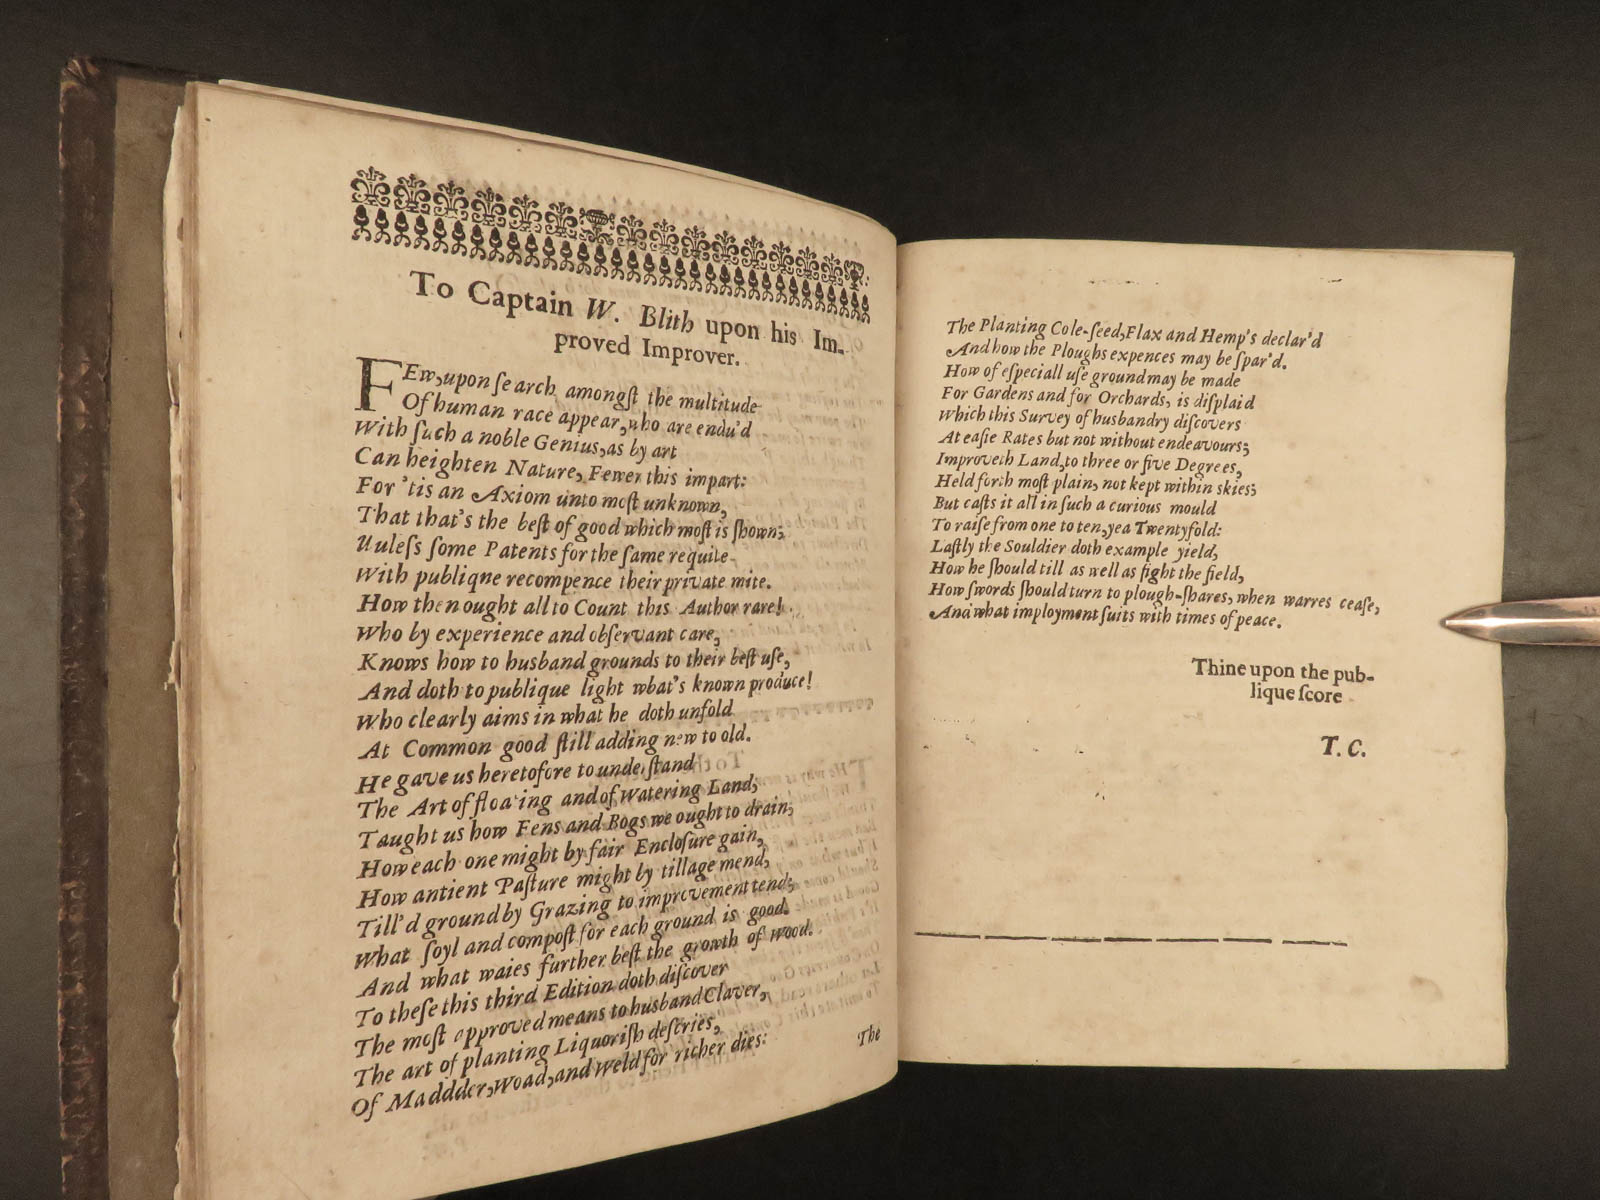 To Captain W. Blith upon his Im-
proved Improver.
FEw, upon ſearch amongſt the multitude
Of human race appear, who are endu'd
With ſuch a noble Genius, as by art
Can heighten Nature, Fewer this impart:
For 'tis an Axiom unto moſt unknown,
That that's the beſt of good which moſt is ſhown;
Uuleſs ſome Patents for the ſame requite
With publiqne recompence their private mite.
How then ought all to Count this Author rare!
Who by experience and obſervant care,
Knows how to husband grounds to their beſt uſe,
And doth to publique light what's known produce!
Who clearly aims in what he doth unfold
At Common good ſtill adding new to old.
He gave us heretofore to underſtand
The Art of floating and of Watering Land;
Taught us how Fens and Bogs we ought to drain;
How each one might by fair Encloſure gain,
How antient Paſture might by tillage mend,
Till'd ground by Grazing to improvement tend;
What ſoyl and compoſt for each ground is good.
And what waies further beſt the growth of Wood.
To theſe this third Edition doth diſcover
The moſt approved means to husband Claver,
The art of planting Liquoriſh deſcries,
Of Maddder, Woad, and Weld for richer dies:
The
The Planting Cole-ſeed, Flax and Hemp's declar'd
And how the Ploughs expences may be ſpar'd.
How of eſpeciall uſe ground may be made
For Gardens and for Orchards, is diſplaid
Which this Survey of husbandry diſcovers
At eaſie Rates but not without endeavours;
Improveth Land, to three or five Degrees,
Held forth moſt plain, not kept within skies;
But caſts it all in ſuch a curious mould
To raiſe from one to ten, yea Twentyfold:
Laſtly the Souldier doth example yield,
How he ſhould till as well as fight the field,
How ſwords ſhould turn to plough-ſhares, when warres ceaſe,
And what imployment ſuits with times of peace.
Thine upon the pub-
lique ſcore
T. C.